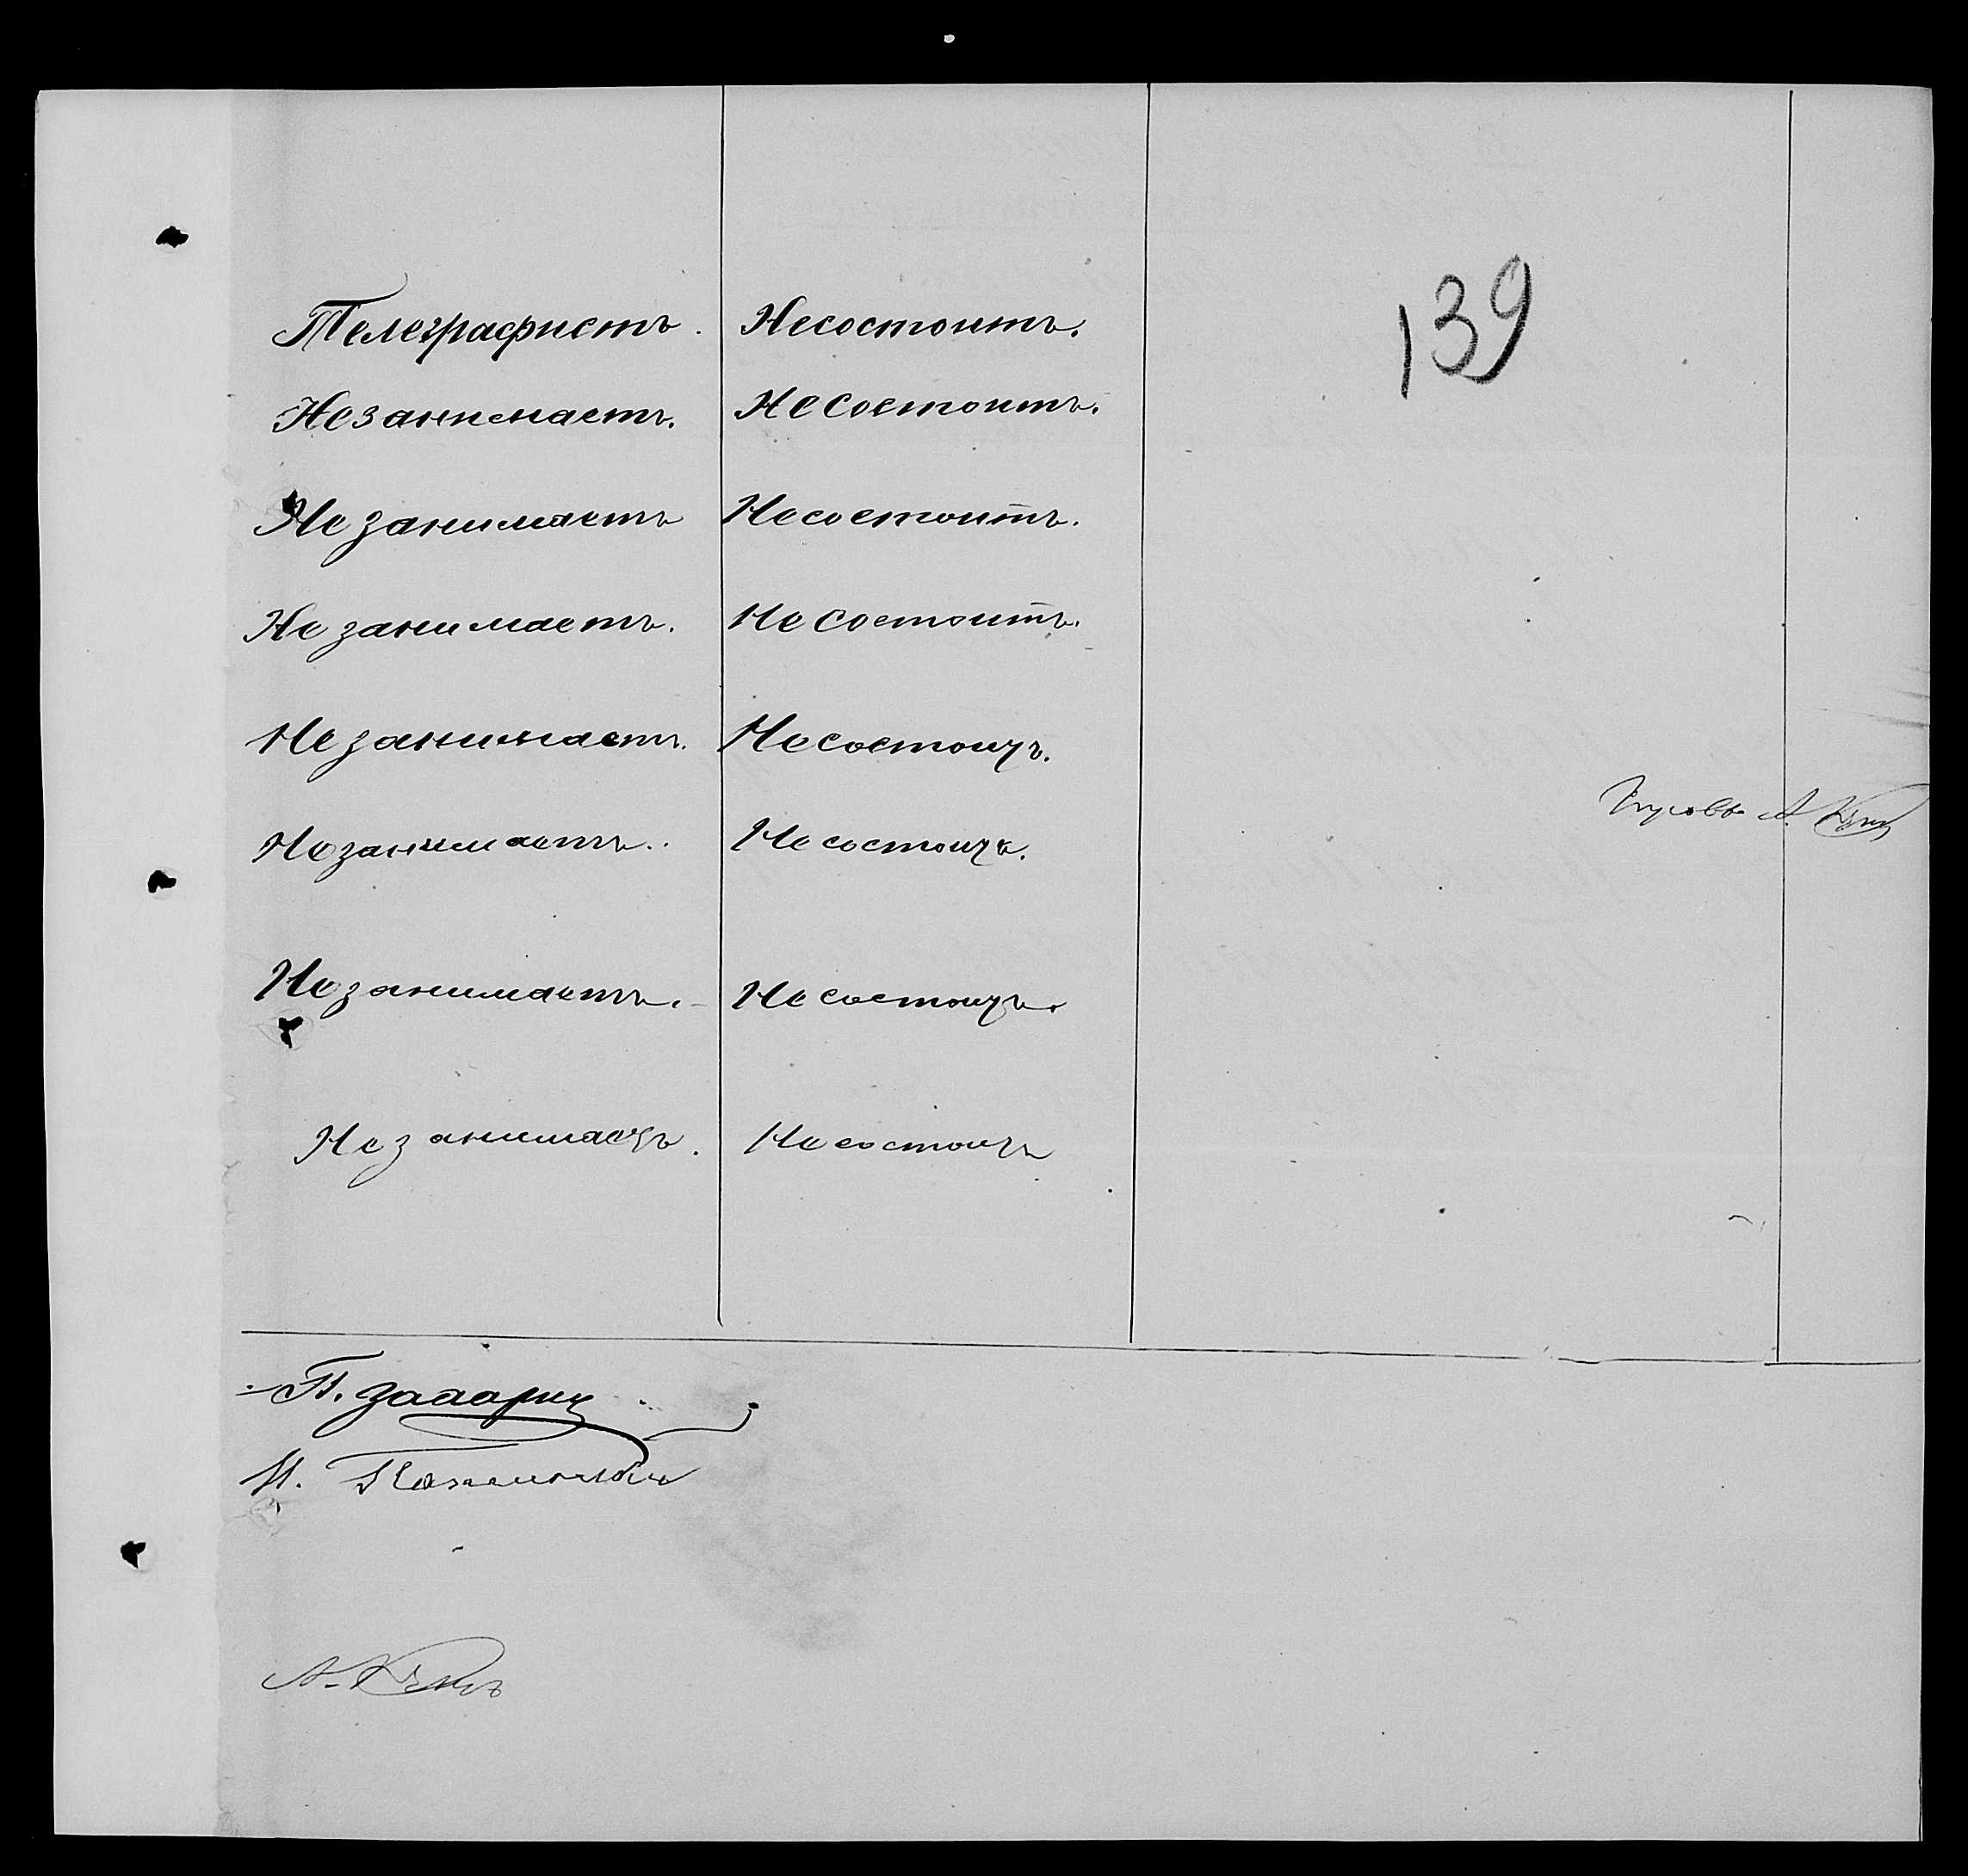 139
Телеграфистъ. Несостоитъ.
Незанимаетъ. Не состоитъ.
Не занимаетъ Несостоитъ.
Не занимаетъ. Не состоитъ.
Не занимаетъ. Не состоитъ.
Не занимаетъ. Не состоитъ.
Не занимаетъ. Не состоитъ.
Не занимаетъ. Не состоитъ
А.
П.
И.
А.